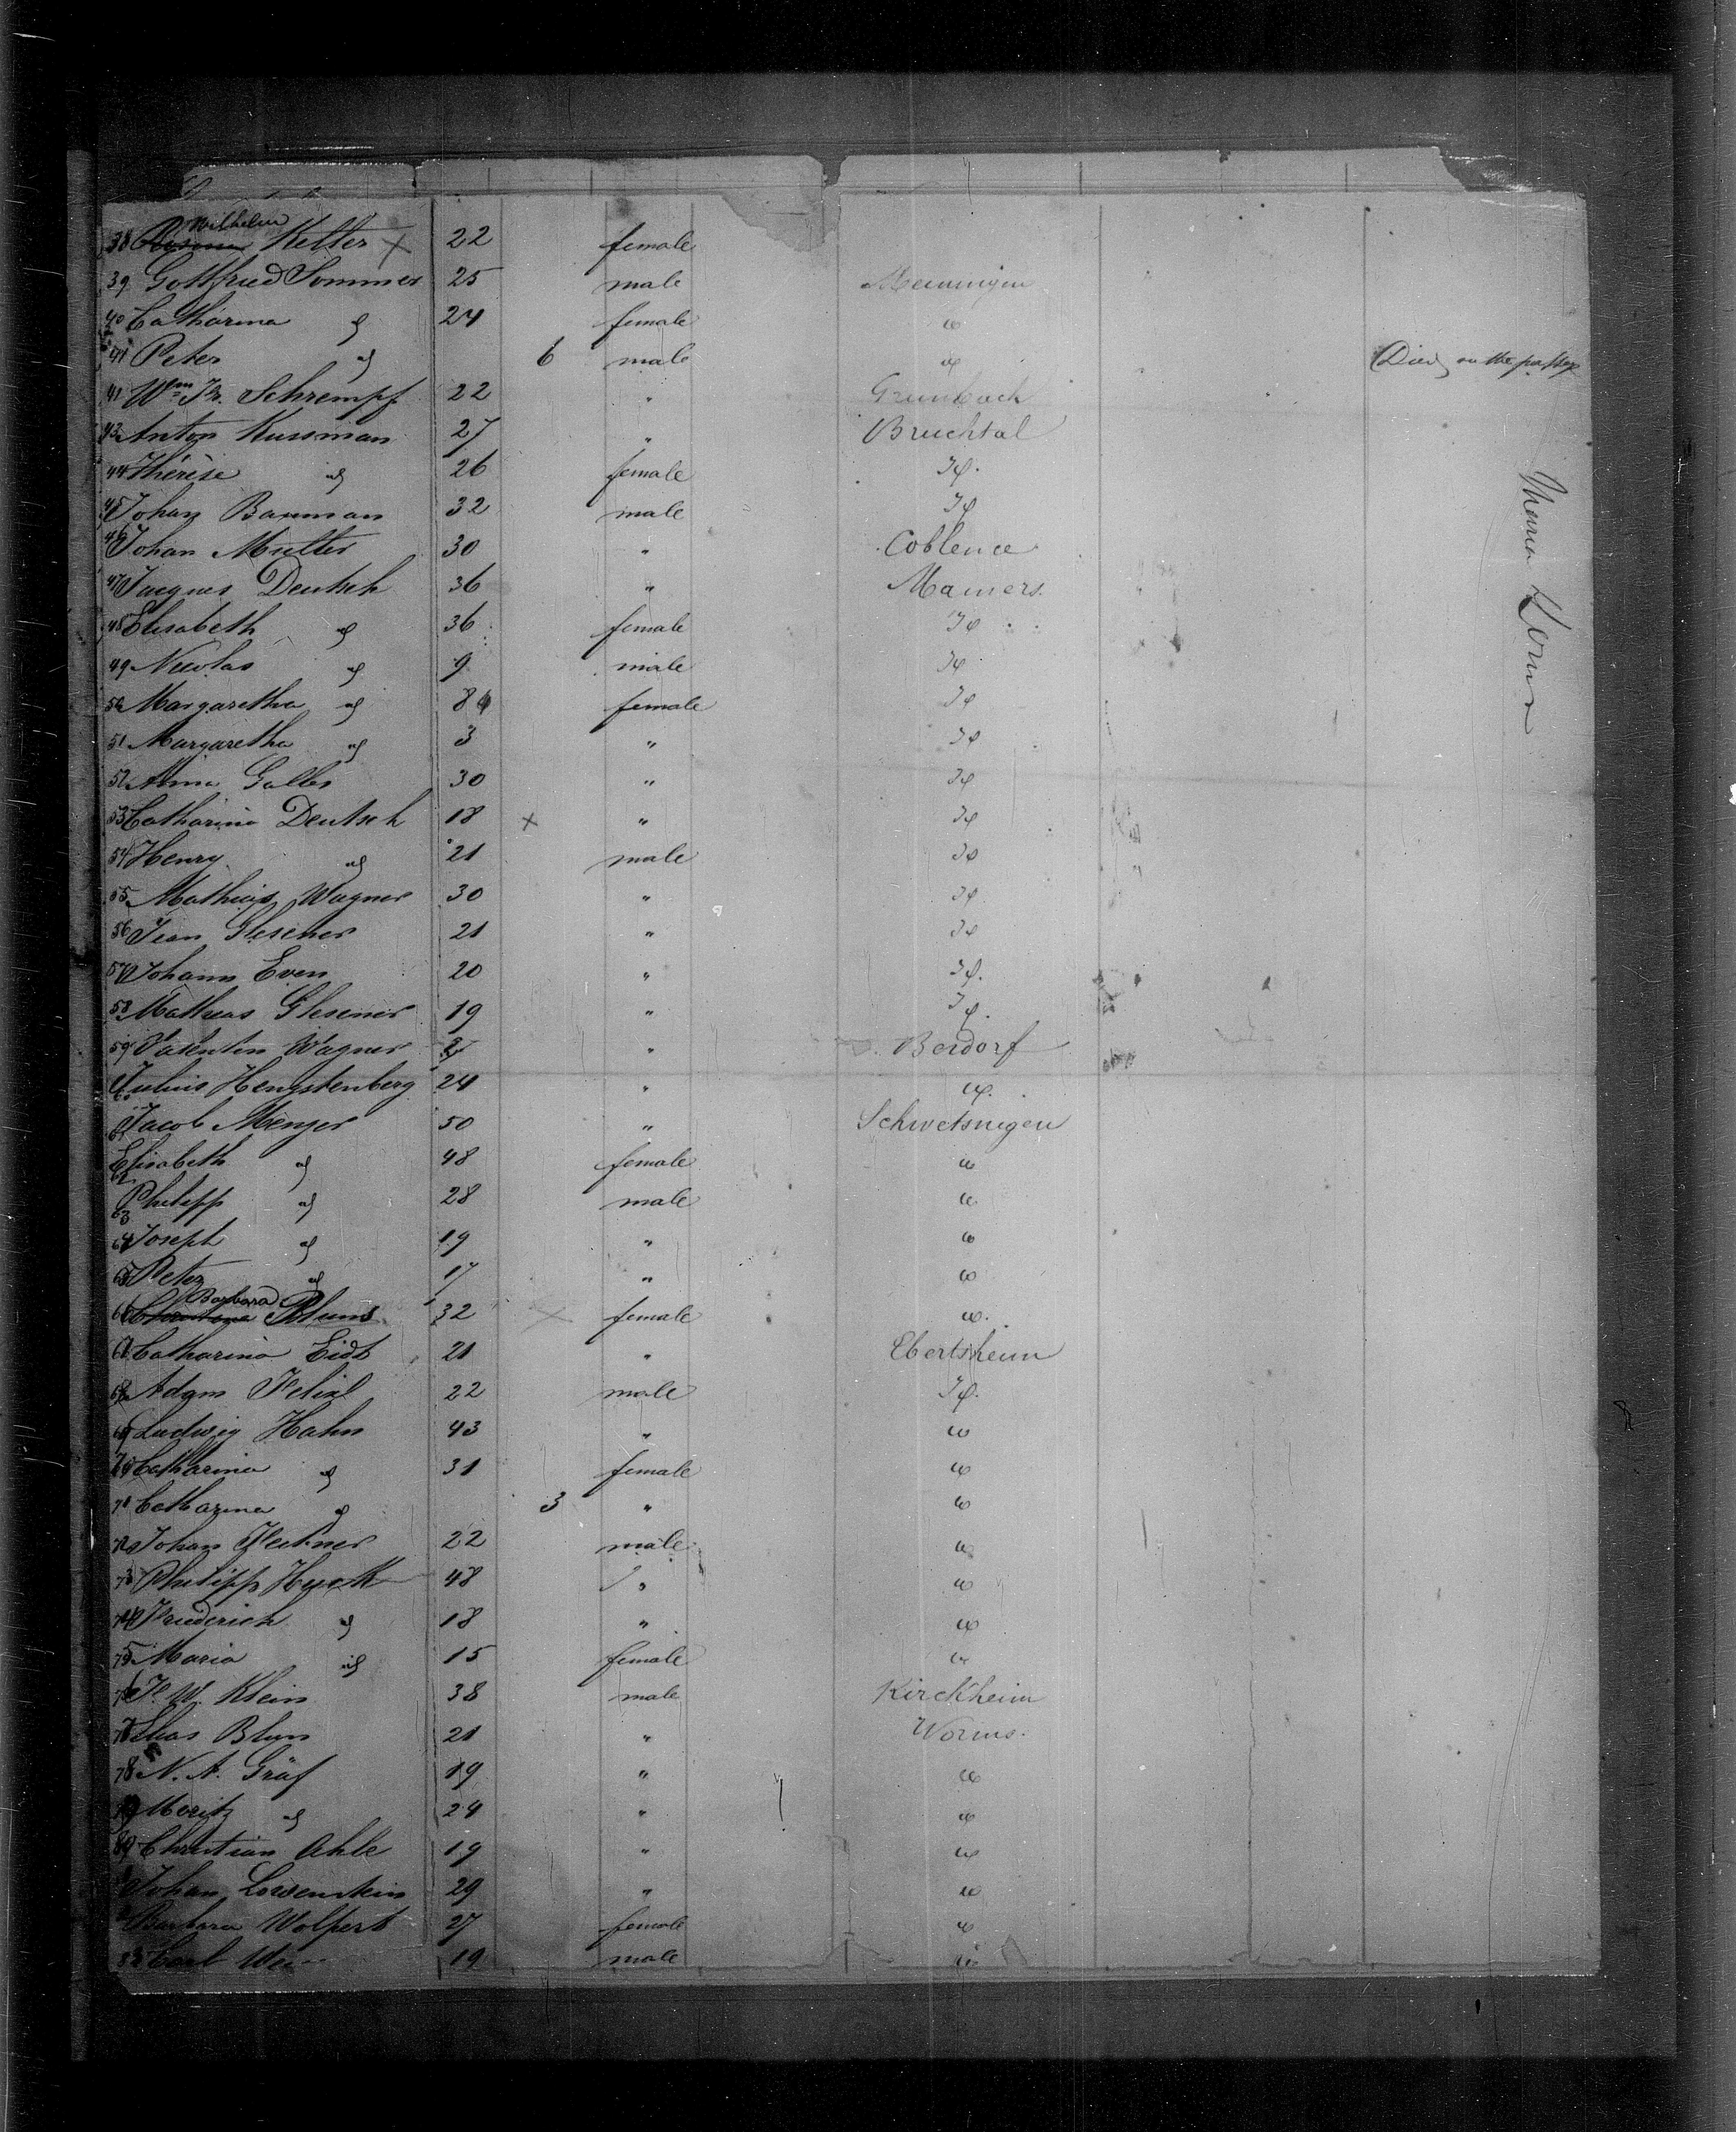 Wilhelm
38 Rosina Keller × 22 female
39 Gottfried Sommer 25 male Menningen
40 Catharina id 24 female id
41 Peter id 6 male id Died on the passage
41 Wm Fr. Schrempf 22 " Grunbach
43 Anton Kussman 27 " Bruchtal
44 Thérèse id 26 female Id.
45 Johan Bauman 32 male Id
46 Johan Muller 30 " Coblence
47 Jacques Deutsch 36 " Mamers
48 Elisabeth id 36 female Id
49 Nicolas id 9 male Id
50 Margaretha id 8 female Id
51 Margaretha id 3 " Id
52 Anna Galles 30 " Id
53 Catharina Deutsch 18 × " Id
54 Henry id 21 male Id
55 Mathias Wagner 30 " Id
56 Jean Glesener 21 " Id
57 Johann Even 20 " Id.
58 Mathias Glesener 19 " Id.
59 Valentin Wagner " Berdorf
60 Julius Hengstenberg 24 " id.
61 Jacob Menger 50 " Schwetsnigen
62 Elisabeth id 48 female id
63 Philipp id 28 male id
64 Joseph id 19 " id
65 Peter id 17 " id
Barbara
66 Blum 32 × female id.
67 Catharina Eidt 21 " Ebertsheim
68 Adam 22 male Id.
69 Ludwig Hahn 43 " id
70 Catharina id 31 female id
71 Catharina id 3 " id
72 Johan 22 male id
73 Philipp Huck 48 " id
74 Friederich id 18 " id
75 Maria id 15 female id
76 F. W. Klein 38 male Kirckheim
77 Blum 21 " Worms.
78 N. A. Gräf 19 " id
79 Moritz id 24 " id
80 Christian Ahle 19 " id
Johan Lowenstein 29 " id
Barbara Wolpert 27 female id
83 Carl 19 male id